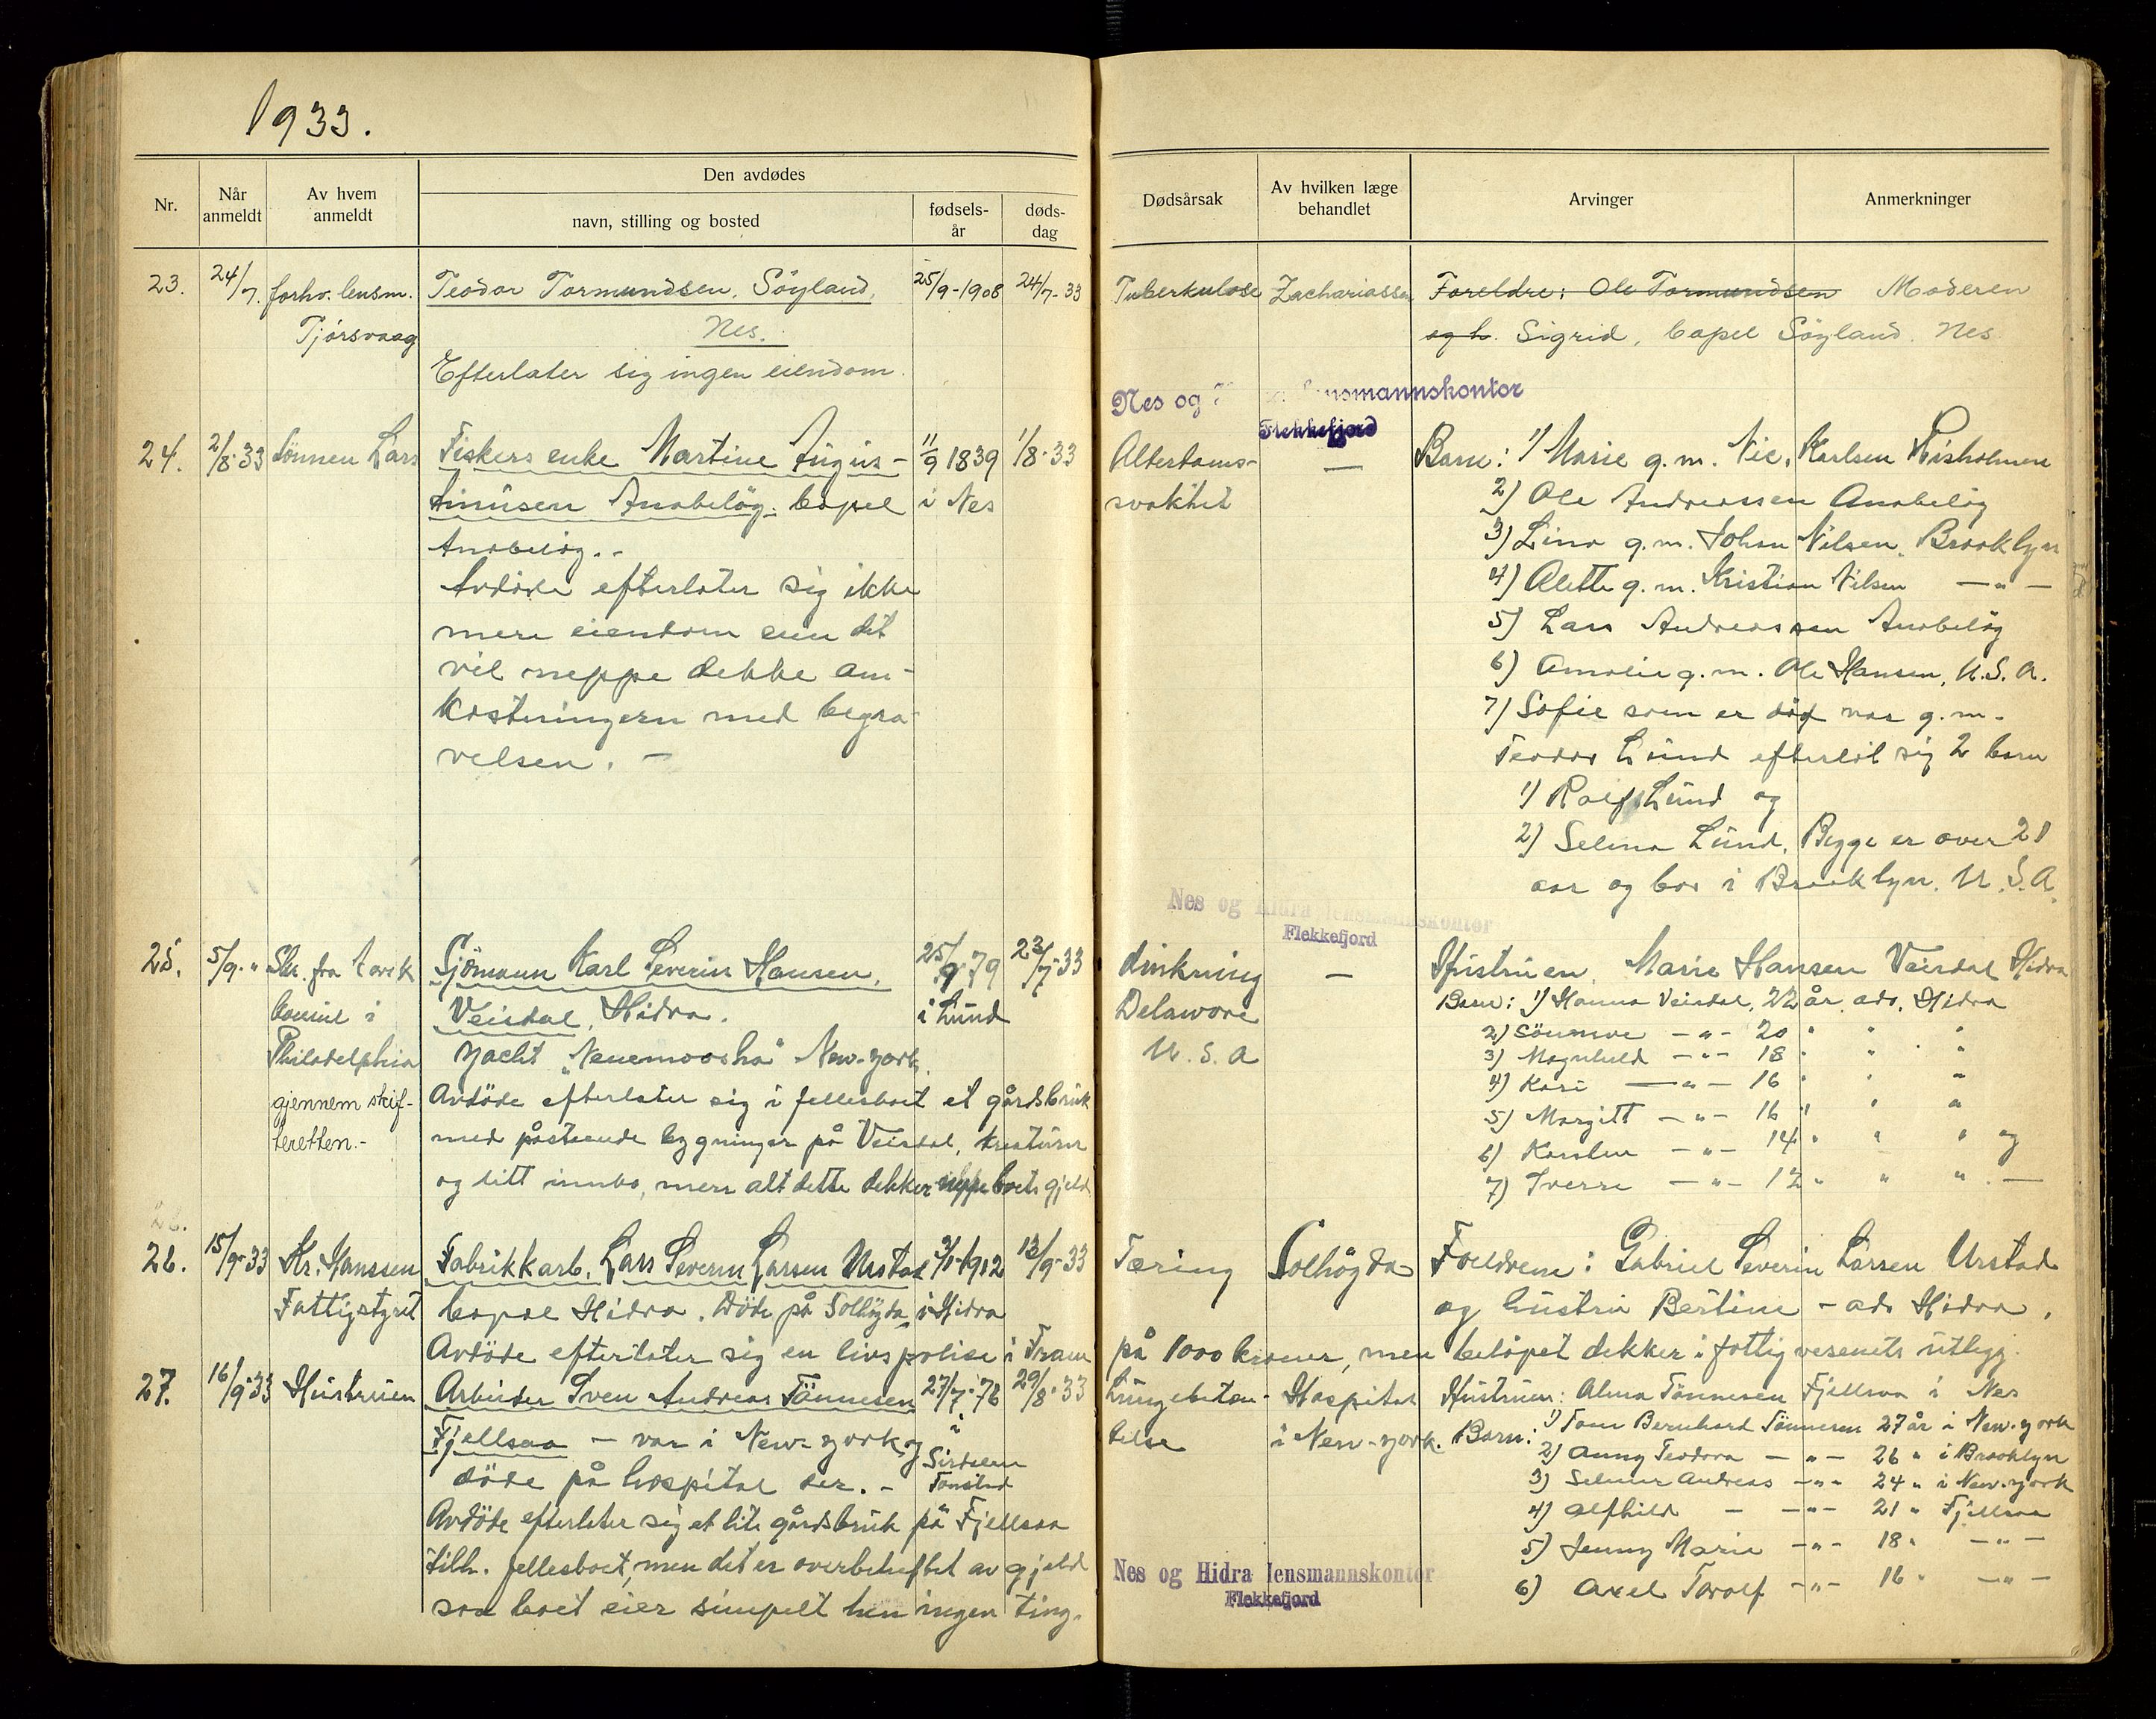 1933.
Nr.
Når anmeldt
Av hvem anmeldt
Den avdødes
navn, stilling og bosted
fødsels-år
døds-dag
Dødsårsak
Av hvilken læge behandlet
Arvinger
Anmerkninger
23. 24/7. forhv. lensm. Teodor Tormundsen, Söyland, 25/9-1908 24/7-33 Tuberkulose Zachariassen Foreldre: Ole Tormundsen Moderen
Tjörsvaag Nes. og h. Sigrid, bopel Söyland. Nes
Efterlater sig ingen eiendom.
Nes og lensmannskontor
Flekkefjord
24. 2/8-33 Sönnen Lars Fiskers enke Martine Augus- 11/9 1839 1/8-33 Alterdoms- — Barn: 1) Marie g.m. Nic. Karlsen Risholmen
tinusen Anabelög. bopel i Nes svakhet 2) Ole Andreassen Anabelög
Anabelög.- 3) Lina g.m. Johan Nilsen, Brooklyn
Avdöde efterlater sig ikke 4) Alette g.m. Kristian Nilsen —„—
mere eiendom enn det 5) Lars Andreassen Anabelög
vil neppe dekke om- 6) Amalie g.m. Ole Hansen, U.S.A.
kostningern med begra- 7) Sofie som er död var g.m.
velsen. — Teodor Lund efterlot sig 2 barn
1) Rolf Lund og
2) Selma Lund. Begge er over 21
aar og bor i Brooklyn. U.S.A.
Nes og Hidra lensmannskontor
Flekkefjord
25. 5/9. „ Skr. fra norsk Sjömann Karl Severin Hansen, 25/9-79 23/7-33 drukning — Hustruen Marie Hansen Veisdal Hidra
konsul i Veisdal, Hidra. i Lund Delaware Barn: 1) Hanna Veisdal, 22 år, adr. Hidra
Philadelphia yacht „Nenemoosha" New-york. U.S.A 2) Sömmve —„— 20 „ „ „
gjennem skif- Avdöde efterlater sig i fellesboet et gårdsbruk 3) Magnhild —„— 18 „ „ „
teretten.- med påstående bygninger på Veisdal, kreaturer 4) Kari —„— 16 „ „ „
og litt innbo, men alt dette dekker neppe boets gjeld 5) Margitt —„— 16 „ „ „
6) Karsten —„— 14 „ „ „ og
7) Sverre —„— 12 „ „ „ —
26. 15/9-33 Kr. Hanssen Fabrikkarb. Lars Severin Larsen Urstad 1912 13/9-33 Tæring Solhögda Foreldrene: Gabriel Severin Larsen Urstad
Fattigstyret bopel Hidra. Döde på Solhögda i Hidra og hustru Bertine — adr. Hidra.
Avdöde efterlater sig en livspolise i Fram på 1000 kroner, men belöpet dekker i fattigvesenets utlegg.
27. 16/9-33 Hustruen Arbeider Sven Andreas Tönnesen 27/7-76 29/8-33 Lungebeten- Hospital Hustruen: Alma Tönnesen Fjellsaa i Nes
Fjellsaa — var i New-york og i Sirdalen Tonstad telse i New-york. Barn: 1) Tom Bernhard Tönnesen 27 år i New-york
döde på hospital der. — 2) Anny Teodora —„— 26 „ i Brooklyn
3) Selmer Andreas —„— 24 „ i New-york
Avdöde efterlater sig et lite gårdsbruk på Fjellsaa 4) Alfhild — —„— 21 „ Fjellsaa
tilh. fellesboet, men det er overbeheftet av gjeld 5) Jenny Marie —„— 18 „ —„—
saa boet eier simpelt hen ingen ting. 6) Axel Torolf —„— 16 „ —„—
Nes og Hidra lensmannskontor
Flekkefjord